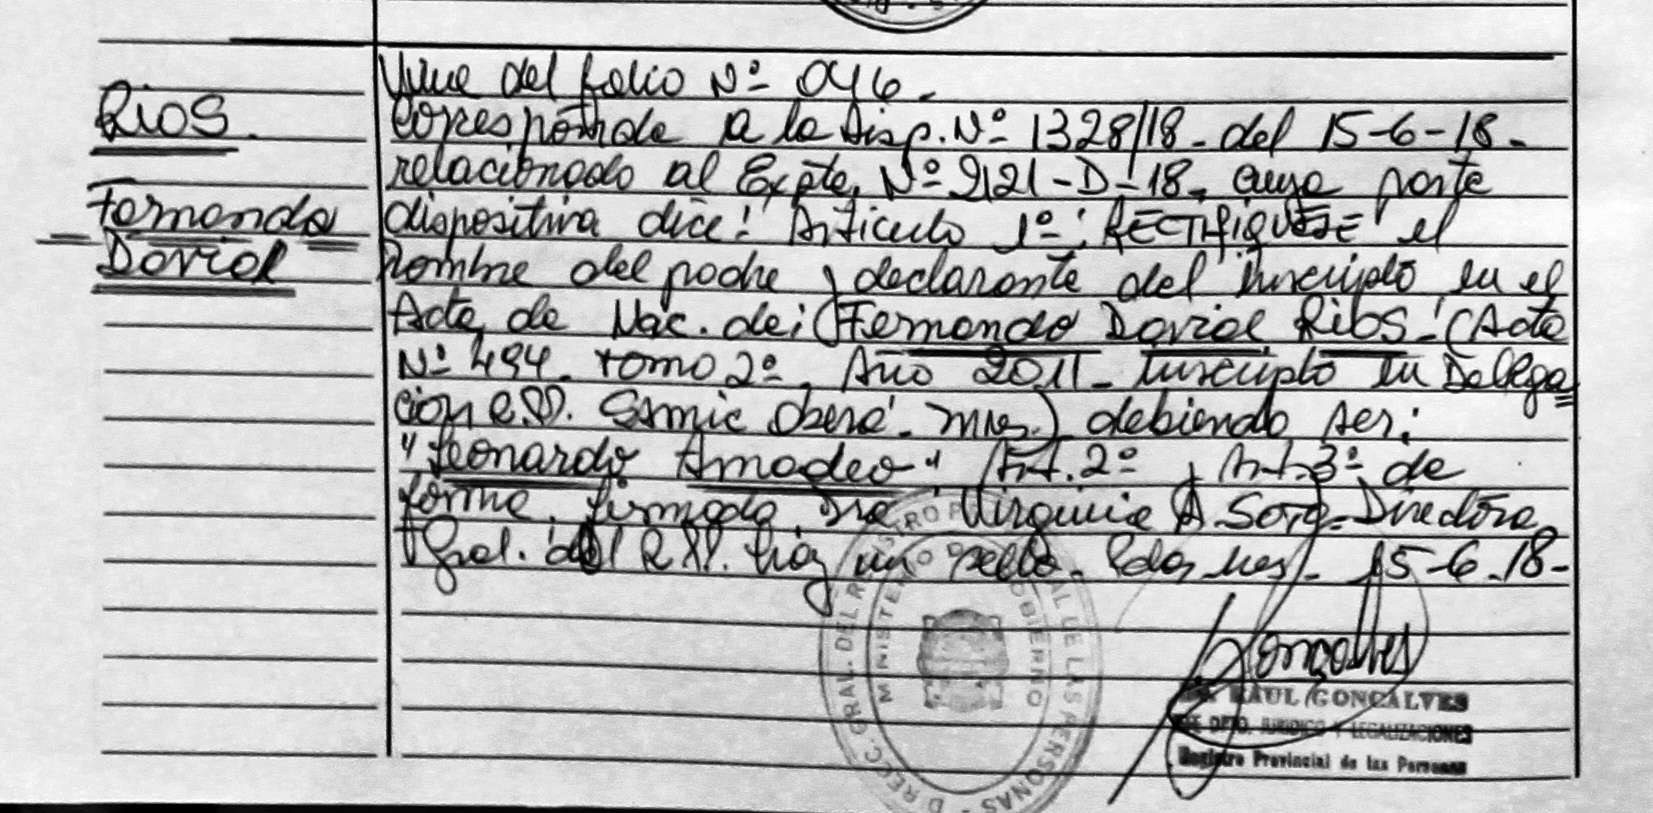 RIOS.
Fernando
Dariel
Viene del folio Nº 046.
Corresponde a la Disp. Nº 1328/18 - del 15-6-18 -
relacionado al Expte. Nº 9121-D-18, cuya parte
dispositiva dice: Artículo 1º: RECTIFIQUESE el
nombre del padre y declarante del inscripto en el
Acta de Nac. de: (Fernando Dariel Rios - (Acta
Nº 494 - tomo 2º, Año 2011 - inscripto en Delega
ción R.P. Samic Oberá - Mnes.) debiendo ser:
"Leonardo Amadeo" Art. 2º y Art. 3º de
forma. firmado Dra Virginia A Soto - Directora
Gral. del R.P. hay un sello. Pdas, Mes, 15-6-18-
Goncalves
RAUL GONCALVES
DPTO. JURIDICO Y LEGALIZACIONES
Registro Provincial de las Personas
DIRECC. GRAL. DEL REGISTRO PROVINCIAL DE LAS PERSONAS
MINISTERIO DE GOBIERNO